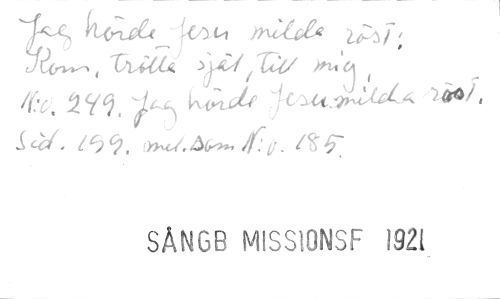 Jag hörde Jesu milda röst:
Kom, trötta själ, till mig,
N:o. 249. Jag hörde Jesu milda röst.
Sid. 199. mel. som N:o. 185.
SÅNGB MISSIONSF 1921